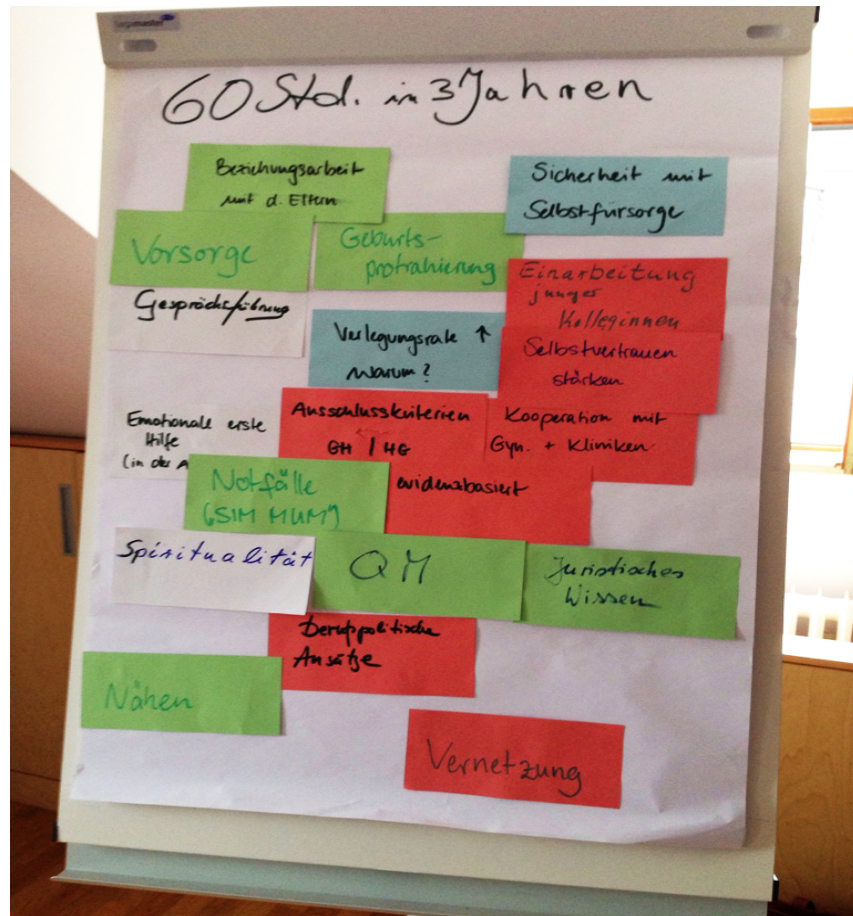 legamaster
60 Std. in 3 Jahren
Beziehungsarbeit
mit d. Eltern
Sicherheit mit
Selbstfürsorge
Vorsorge
Geburts-
protrahierung
Einarbeitung
junger
Kolleginnen
Gesprächsführung
Verlegungsrate ↑
Warum?
Selbstvertrauen
stärken
Emotionale erste
Hilfe
(in der A
Ausschlusskriterien
GH / HG
Kooperation mit
Gyn. + Kliniken
Notfälle
("SIM MUM")
evidenzbasiert
Spiritualität
QM
Juristisches
Wissen
Berufspolitische
Ansätze
Nähen
Vernetzung